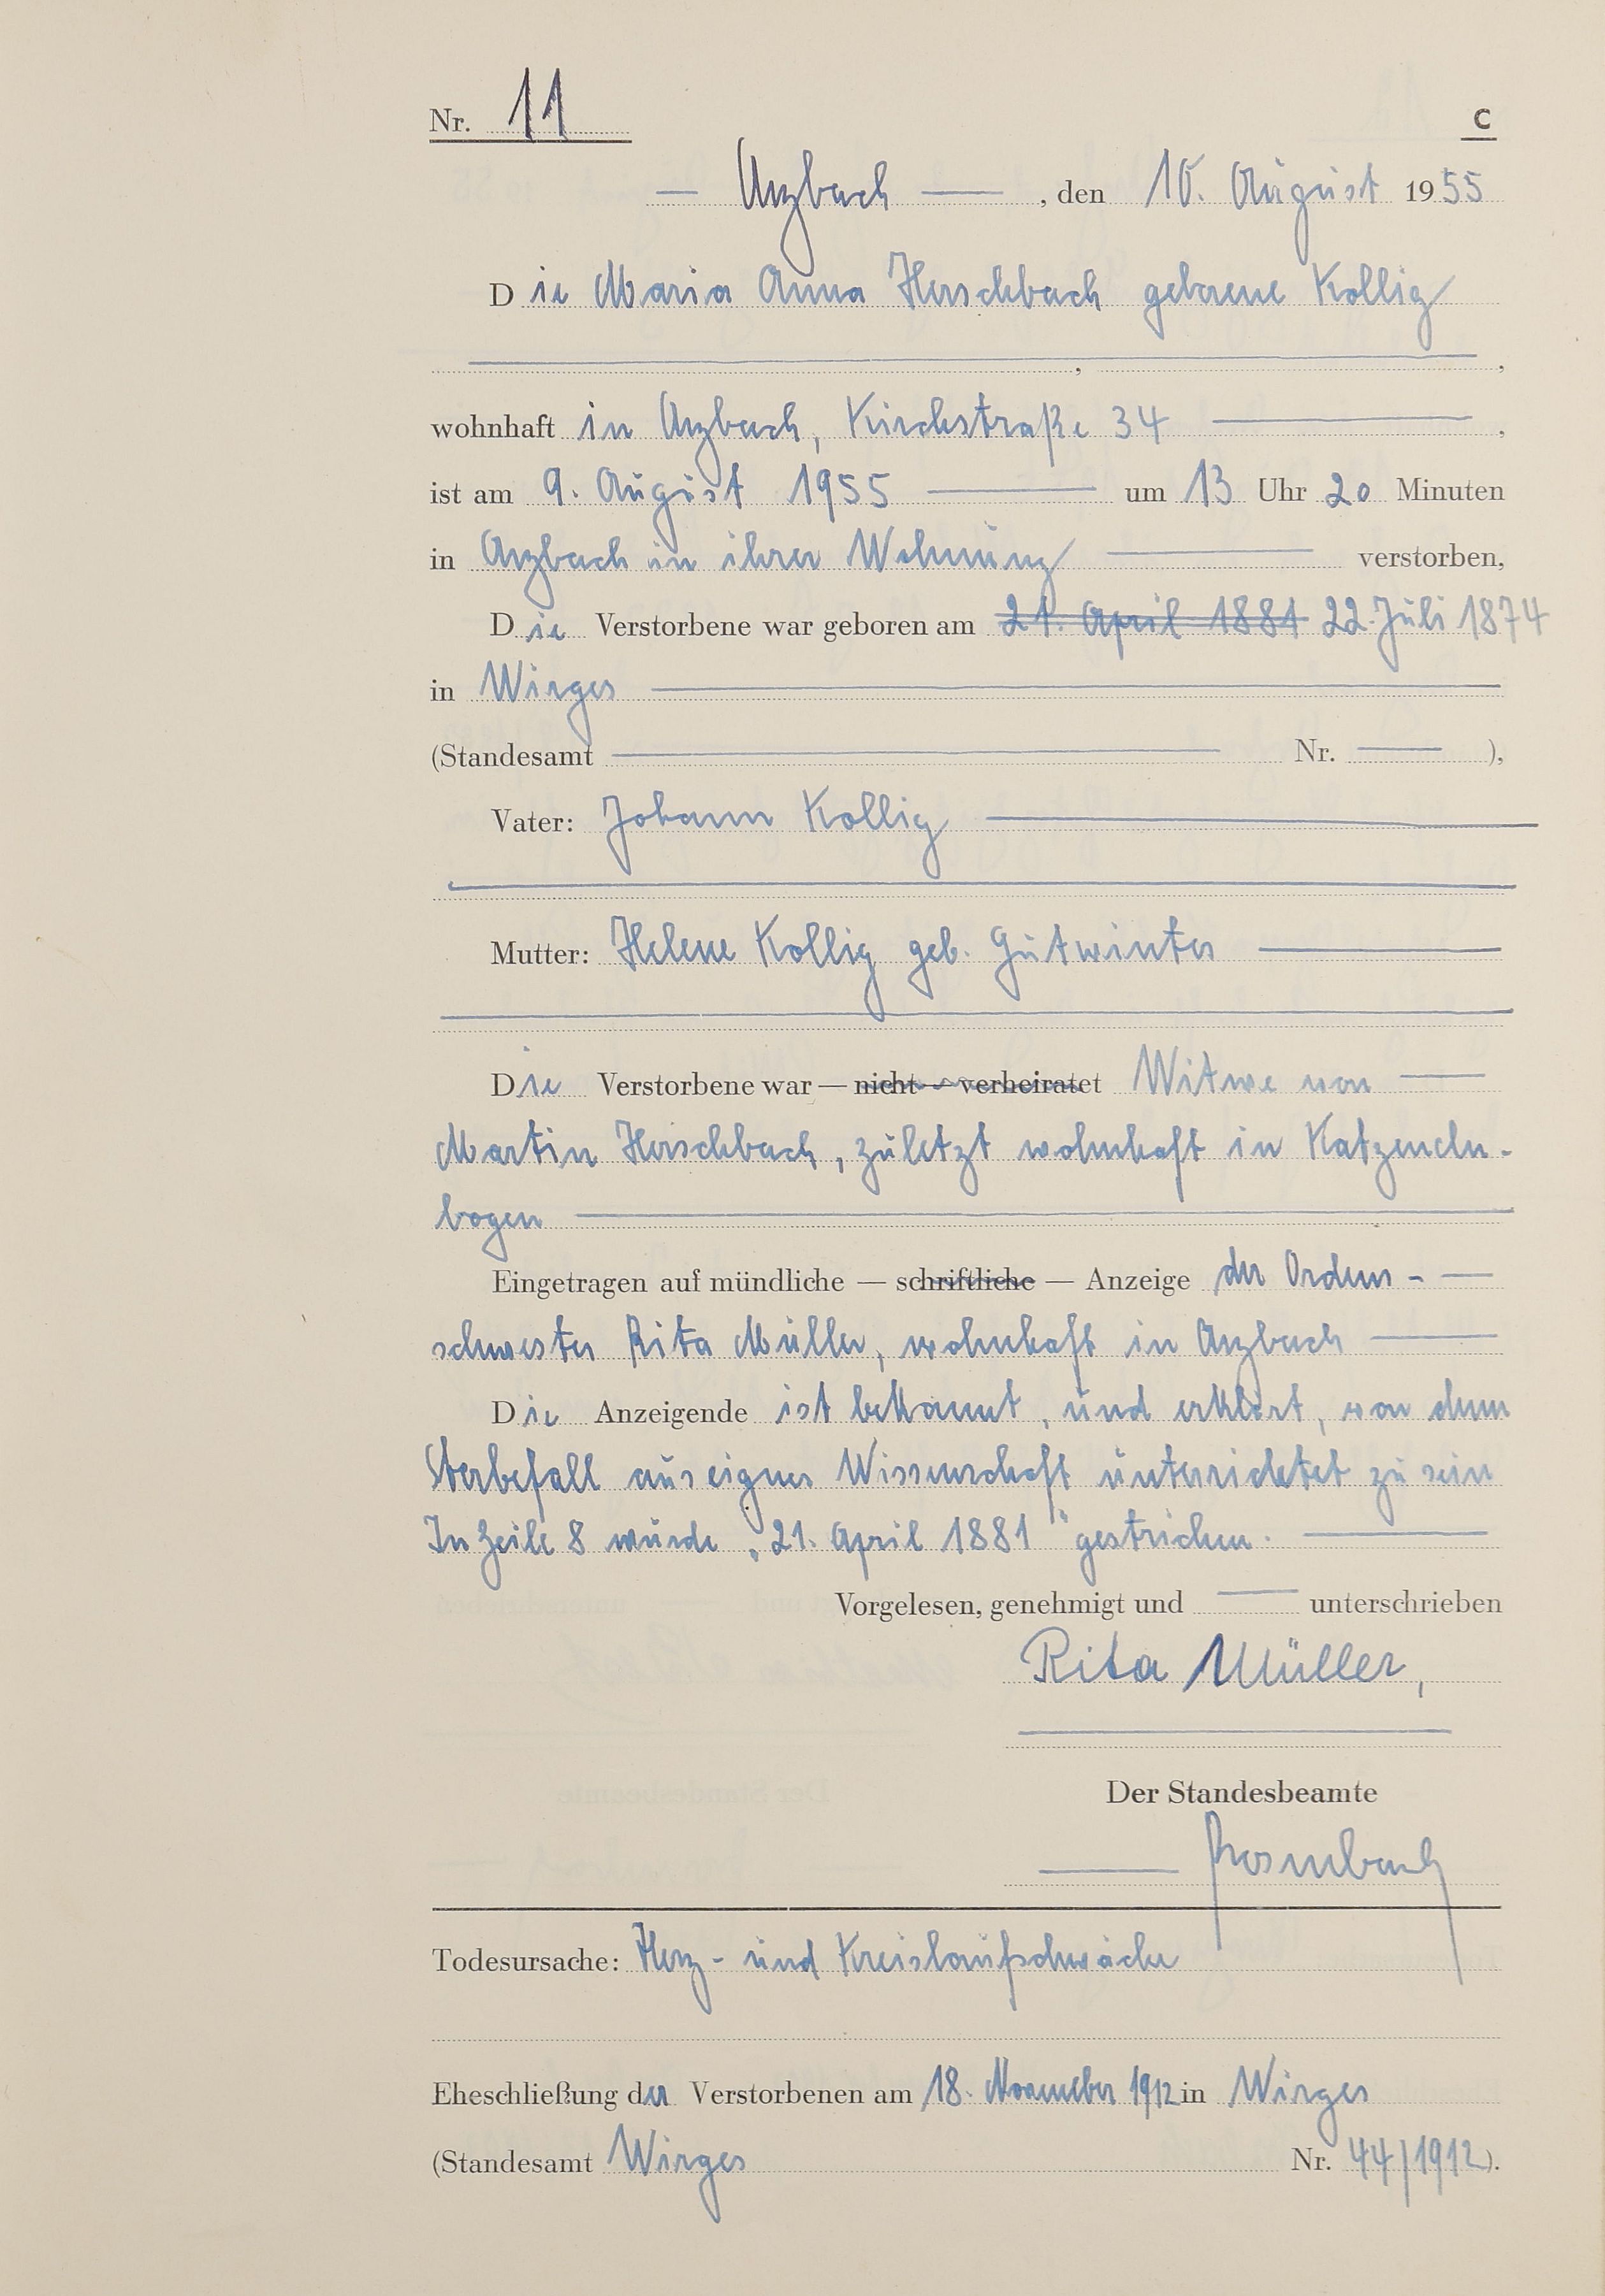 Nr. 11 C
— Arzbach — , den 10. August 1955
Die Maria Anna Herschbach geborene Kollig
,
wohnhaft in Arzbach, Kirchstraße 34 — ,
ist am 9. August 1955 — um 13 Uhr 20 Minuten
in Arzbach in ihrer Wohnung — verstorben,
Die Verstorbene war geboren am 21. April 1881 22. Juli 1874
in Wirges —
(Standesamt — Nr. — ),
Vater: Johann Kollig —
Mutter: Helene Kollig geb. Gutwinter —
Die Verstorbene war — nicht — verheiratet Witwe von —
Martin Herschbach, zuletzt wohnhaft in Katzeneln-
bogen —
Eingetragen auf mündliche — schriftliche — Anzeige der Ordens- —
schwester Rita Müller, wohnhaft in Arzbach —
Die Anzeigende ist bekannt, und erklärt, von dem
Sterbefall aus eigner Wissenschaft unterrichtet zu sein
In Zeile 8 wurde „21. April 1881" gestrichen. —
Vorgelesen, genehmigt und — unterschrieben
Rita Müller,
Der Standesbeamte
Todesursache: Herz- und Kreislaufschwäche
Eheschließung der Verstorbenen am 18. November 1912 in Wirges
(Standesamt Wirges Nr. 44/1912).